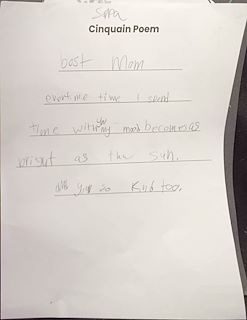 Sara
Cinquain Poem
bost Mom
overtime time I spent
time with you my mood becomes as
bright as the sun.
you so kind too.